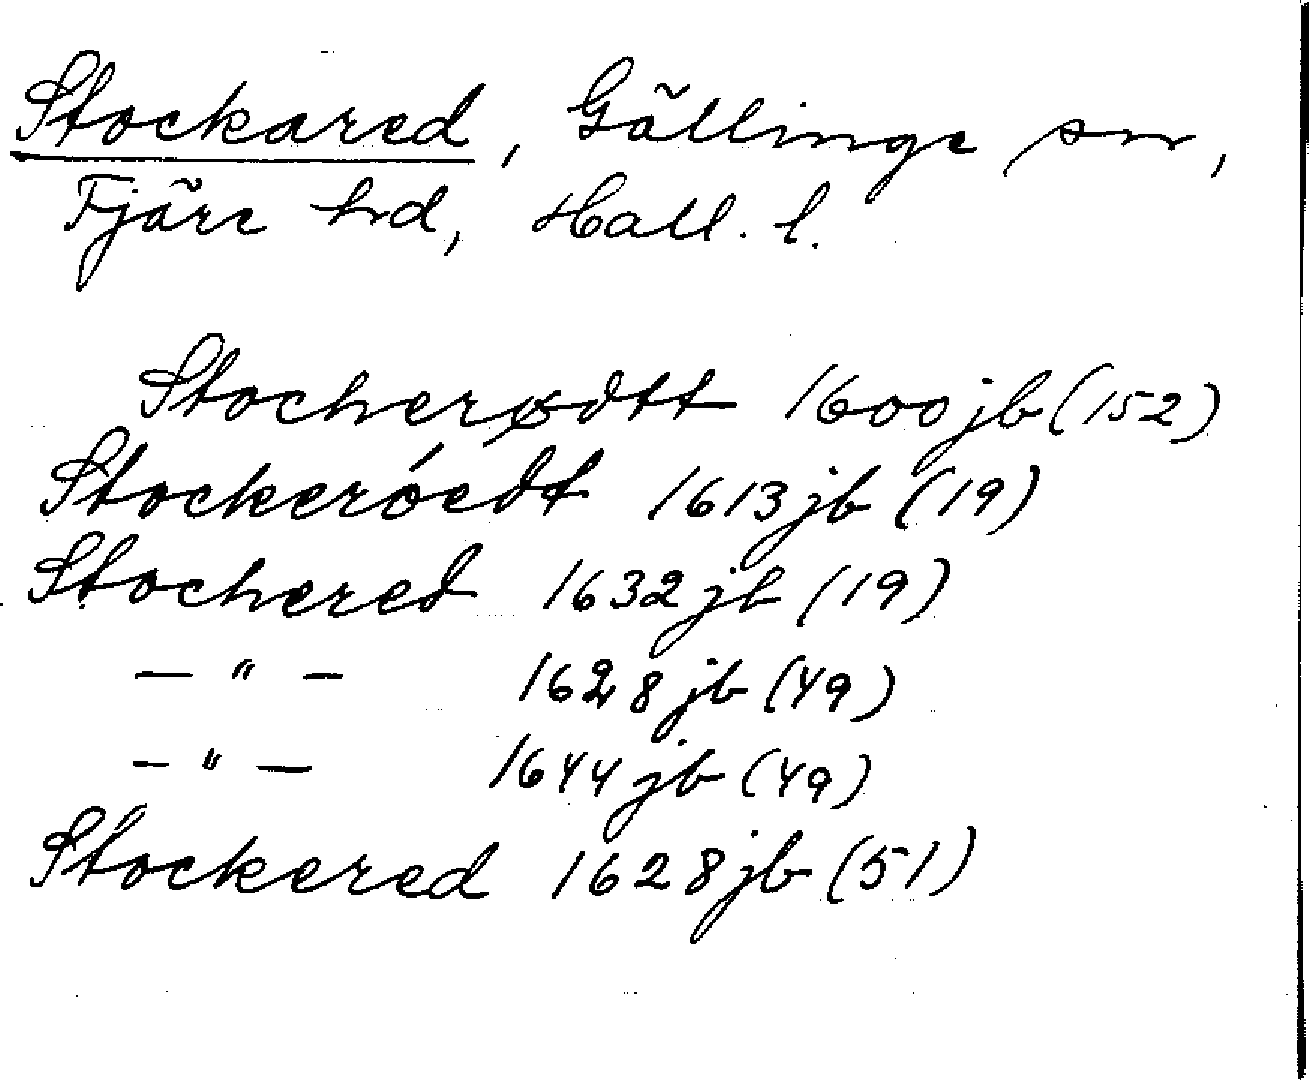 Stockared, Gällinge sn,
Fjäre hd, Hall. l.
Stocherødtt 1600 jb (152)
Stockeróedt 1613 jb (19)
Stochered 1632 jb (19)
— " — 1628 jb (49)
— " — 1644 jb (49)
Stockered 1628 jb (51)